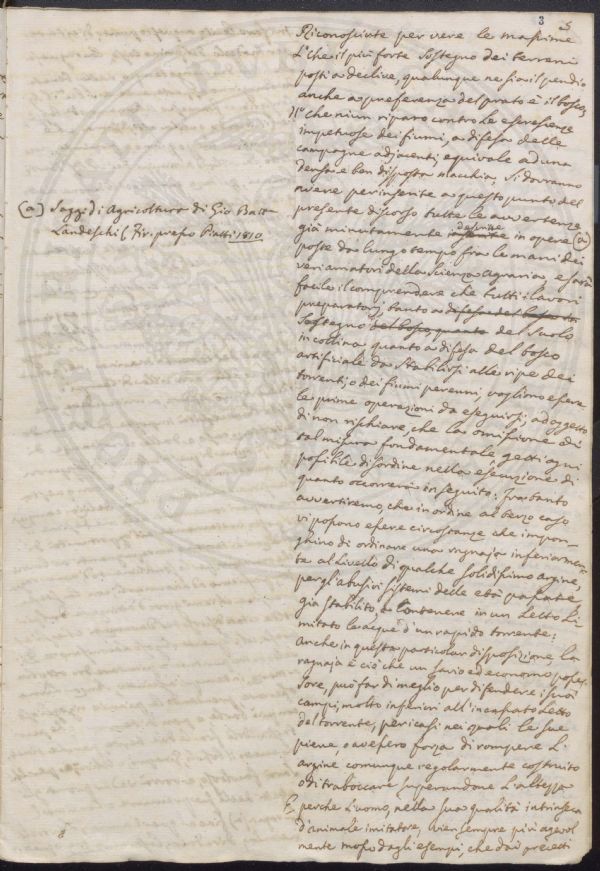 3
5
Riconosciute per vere le massime
1.° che il più forte sostegno dei terreni
posti a declive, qualunque ne sia il pendio
anche a preferenza del prato è il bosco
II.° che niun riparo contro le escrescenze
impetuose dei fiumi, a difesa delle
campagne adjacenti, equivale ad una
densa e ben disposta macchia, si dovranno
avere per inserite a questo punto del
presente discorso tutte le avvertenze
già minutamente descritte in opere (a)
poste da lungo tempo fra le mani dei
veri amatori della scienza agraria, e sarà
facile il comprendere che tutti i lavori
preparatorj, tanto a difesa del bosco
sostegno del bosco quanto del suolo
in collina quanto a difesa del bosco
artificiale da stabilirsi alle ripe dei
torrenti, o dei fiumi perenni vogliono essere
le prime operazioni da eseguirsi, ad oggetto
di non rischiare, che la omissione di
tal misura fondamentale getti ogni
possibile disordine nella esecuzione di
quanto occorrerà in seguito. Frattanto
avvertiremo, che in ordine al terzo caso
vi possono essere circostanze che impon-
ghino di ordinare una ragnaja inferiormen
te al livello di qualche solidissimo argine,
per gl'abusivi sistemi delle età passate
già stabilito, a contenere in un letto li
mitato le acque d'un rapido torrente:
Anche in questa particolar disposizione, la
ragnaja è ciò che un savio ed economo posses
sore, può far di meglio per difendere i suoi
campi, molto inferiori all'incassato letto
del torrente, per i casi nei quali le sue
piene, avessero forza di rompere l'
argine comunque regolarmente costruito
o di traboccare superandone l'altezza
E perche l'uomo, nella sua qualità intrinseca
d'animale imitatore, vien sempre più agevol
mente mosso dagli esempi, che dai precetti
(a) Saggi di Agricoltura di Gio Batta
Landeschi (Fir. presso Piatti 1810